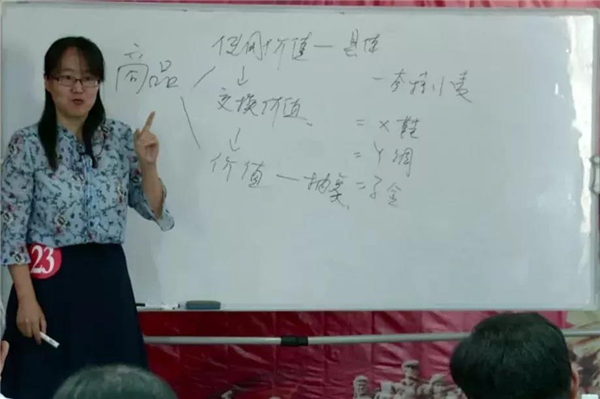 商品
使用价值—具体
↓
交换价值
↓
价值—抽象
一夸特小麦
= X 鞋
= Y 绸
= Z 金
23